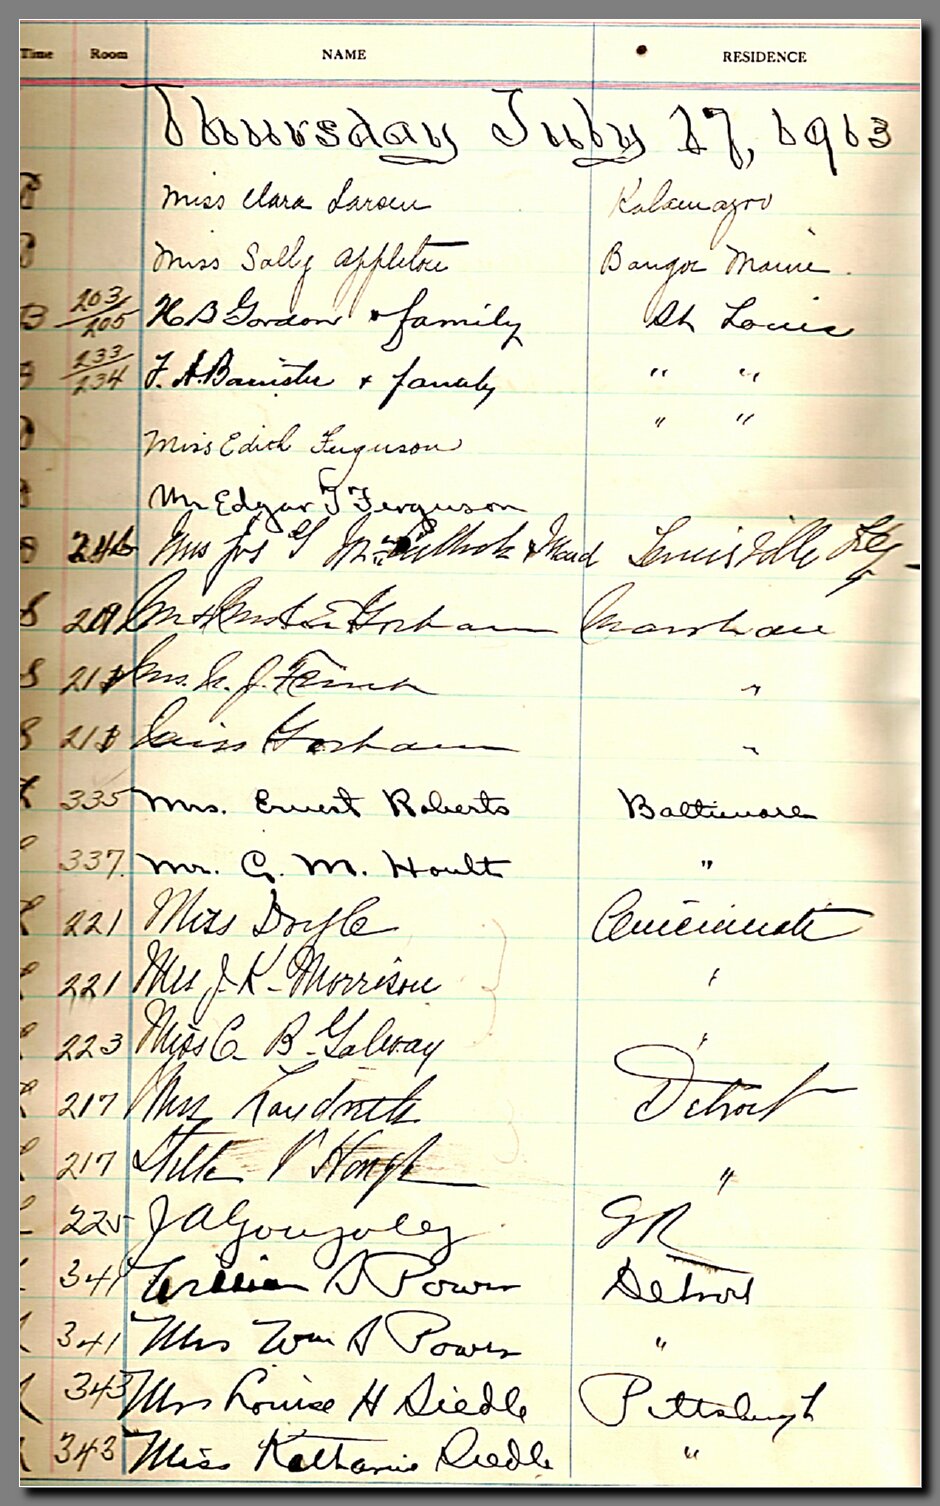 Time Room NAME RESIDENCE
Thursday July 17, 1913
Miss Clara Larsen Kalamazoo
Miss Sally Appleton Bangor Maine.
B 203/205 H B Gordon & family St Louis
233/234 F. A. Banister & family " "
Miss Edith Ferguson " "
Mr Edgar T Ferguson
246 Mrs Jos G & Maid Louisville Ky
S 209 Gorham
S 218 Mrs. J. "
S 218 Miss Gorham "
335 Mrs. Ernest Roberts Baltimore
337. Mr. G. M. Hoult "
221 Miss Doyle Cincinnati
221 Mrs J. K. Morrison "
223 Miss C. B. Galway "
217 Mrs Detroit
217 Hough "
225 J A Gonzalez GR
341 William S Power Detroit
341 Mrs Wm S Power "
343 Mrs Louise H Siedle Pittsburgh
343 Miss Katharine Siedle "